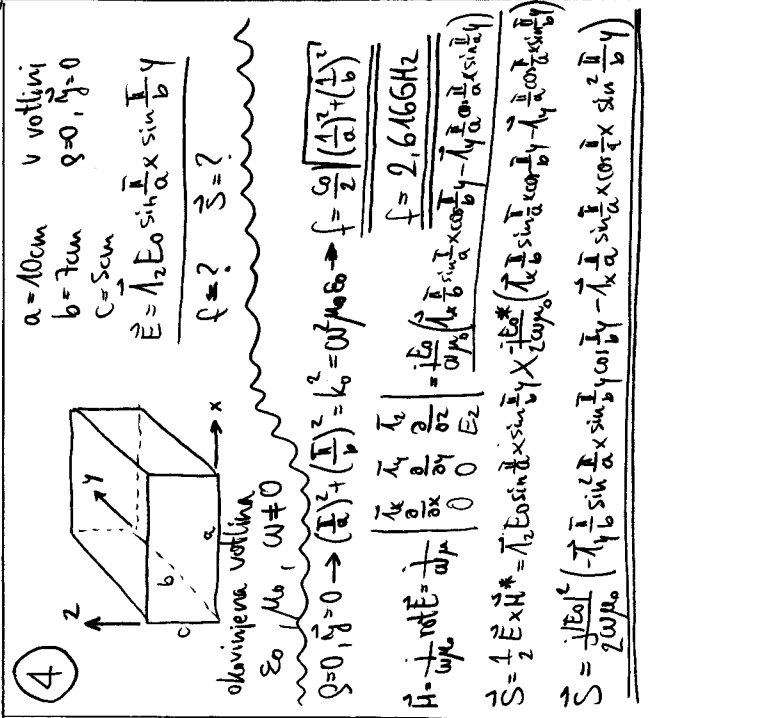 4
z
y
x
a
b
c
okovinjena votlina
ε₀, μ₀, ω≠0
a=10cm v votlini
b=7cm ρ=0, J⃗=0
c=5cm
E⃗ = 1⃗z E₀ sin π/a x sin π/b y
f=? S⃗=?
ρ=0, J⃗=0 → (π/a)² + (π/b)² = k₀² = ω²μ₀ε₀ → f = c₀/2 √((1/a)² + (1/b)²)
f = 2,616GHz
H⃗ = j/ωμ₀ rot E⃗ = j/ωμ | 1⃗x 1⃗y 1⃗z | ∂/∂x ∂/∂y ∂/∂z | 0 0 Ez | = jE₀/ωμ₀ (1⃗x π/b sin π/a x cos π/b y − 1⃗y π/a cos π/a x sin π/b y)
S⃗ = 1/2 E⃗ × H⃗* = 1⃗z E₀ sin π/a x sin π/b y × −jE₀*/2ωμ₀ (1⃗x π/b sin π/a x cos π/b y − 1⃗y π/a cos π/a x sin π/b y)
S⃗ = j|E₀|²/2ωμ₀ (−1⃗y π/b sin² π/a x sin π/b y cos π/b y − 1⃗x π/a sin π/a x cos π/a x sin² π/b y)